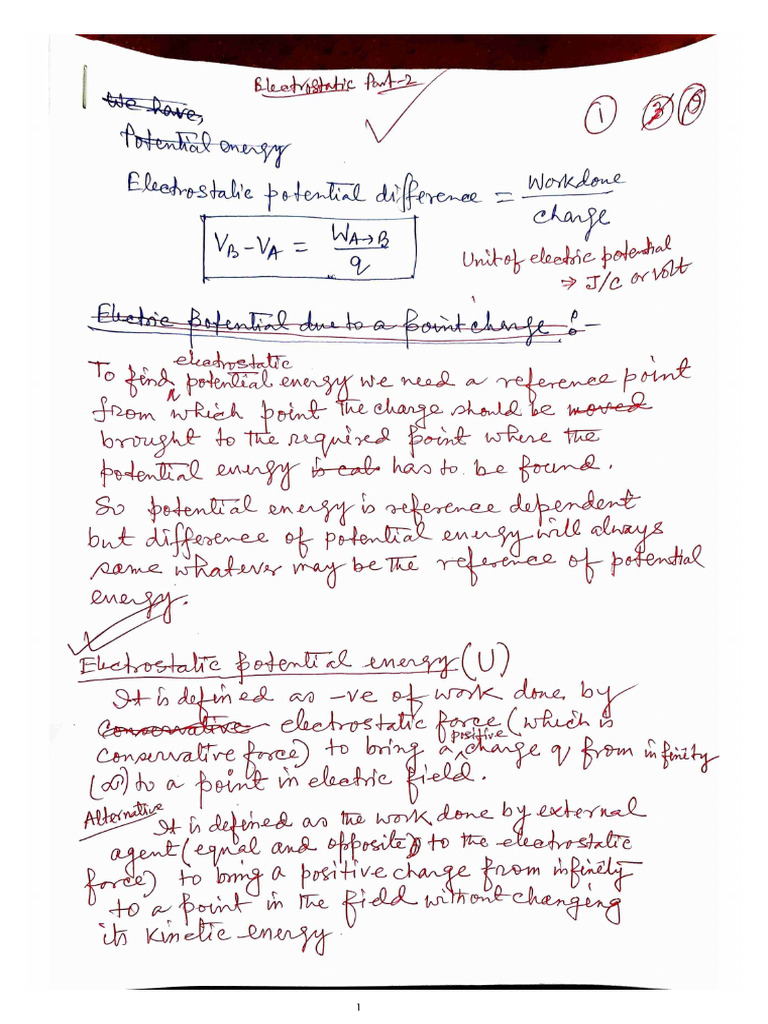 Electrostatic Part-2
① 3 5
We have,
Potential energy
Electrostatic potential difference = Workdone / charge
V_B - V_A = W_A→B / q
Unit of electric potential
⇒ J/C or volt
Electric Potential due to a point charge :-
electrostatic
To find ^ potential energy we need a reference point
from which point the charge should be moved
brought to the required point where the
potential energy is cal. has to be found.
So potential energy is reference dependent
but difference of potential energy will always
same whatever may be the reference of potential
energy.
Electrostatic potential energy (U)
It is defined as -ve of work done by
Conservative electrostatic force (which is
positive
conservative force) to bring a ^ charge q from infinity
(∞) to a point in electric field.
Alternative
It is defined as the work done by external
agent (equal and opposite) to the electrostatic
force) to bring a positive charge from infinity
to a point in the field without changing
its kinetic energy.
1